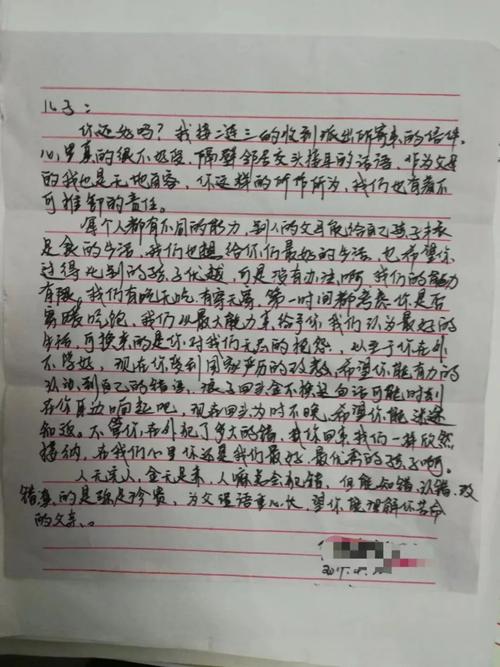 儿子：
你还好吗？我接二连三的收到派出所寄来的信件。
心里真的很不好受，隔壁邻居交头接耳的话语，作为父母
的我也是无地自容，你这样的所作所为，我们也有着不
可推卸的责任。
每个人都有不同的能力，别人的父母能给自己孩子丰衣
足食的生活，我们也想给你们最好的生活，也希望你
过得比别的孩子优越，可是没有办法啊，我们的能力
有限，我们有吃无吃，有穿无穿，第一时间都考虑你是否
穿暖吃饱，我们以最大能力来给予你我们认为最好的
生活，可换来的是你对我们无尽的抱怨，以至于你在外
不学好，现在你受到国家严厉的改教，希望你能有力的
认识到自己的错误，浪子回头金不换这句话可能时刻
在你耳边响起吧，现在回头为时不晚，希望你能迷途
知返。不管你在外犯了多大的错，只要你回来我们一样欣然
接纳，在我们心里你还是我们最好，最优秀的孩子啊。
人无完人，金无足赤，人嘛总会犯错，但能知错、认错、改
错真的是弥足珍贵，为父语重心长，望你能理解你苦命
的父亲。